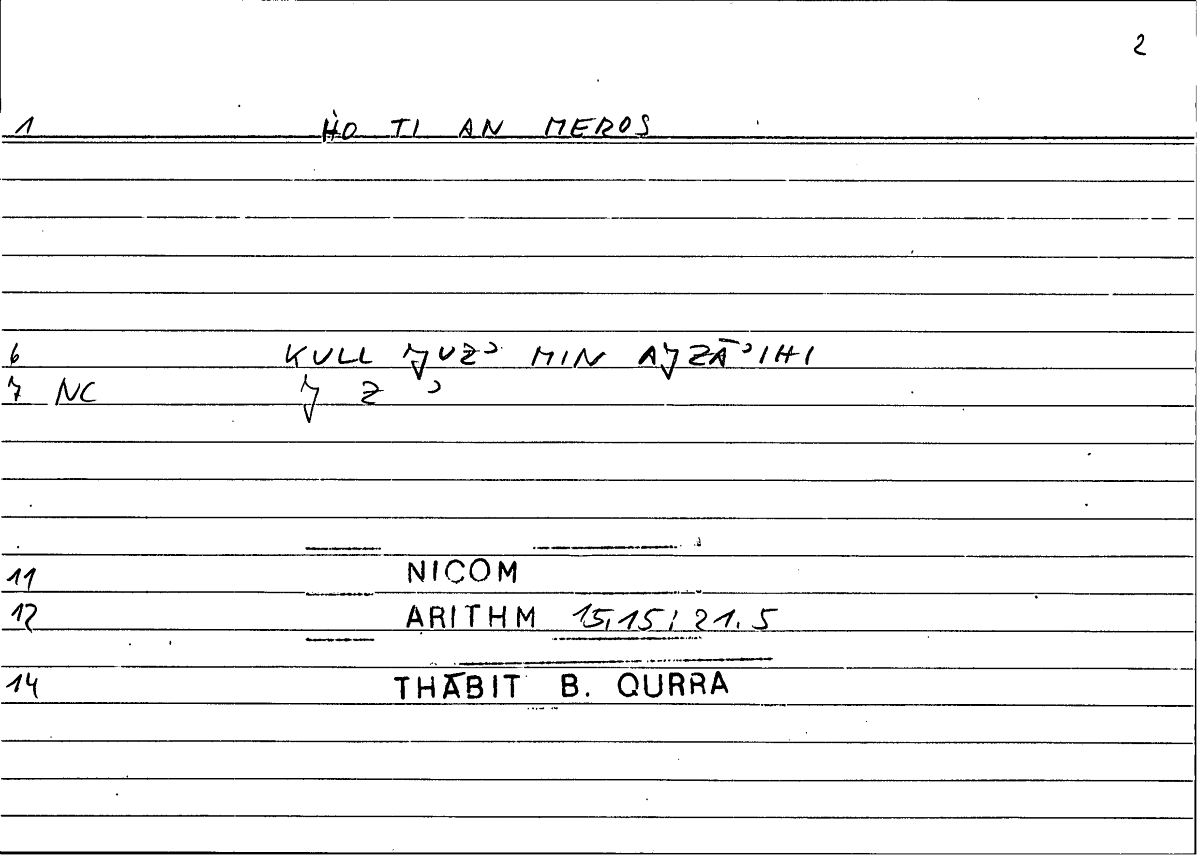 2
1 HO TI AN MEROS
6 KULL JUZʾ MIN AJZĀʾIHI
7 NC J Z ʾ
11 NICOM
12 ARITHM 15,15; 21.5
14 THĀBIT B. QURRA